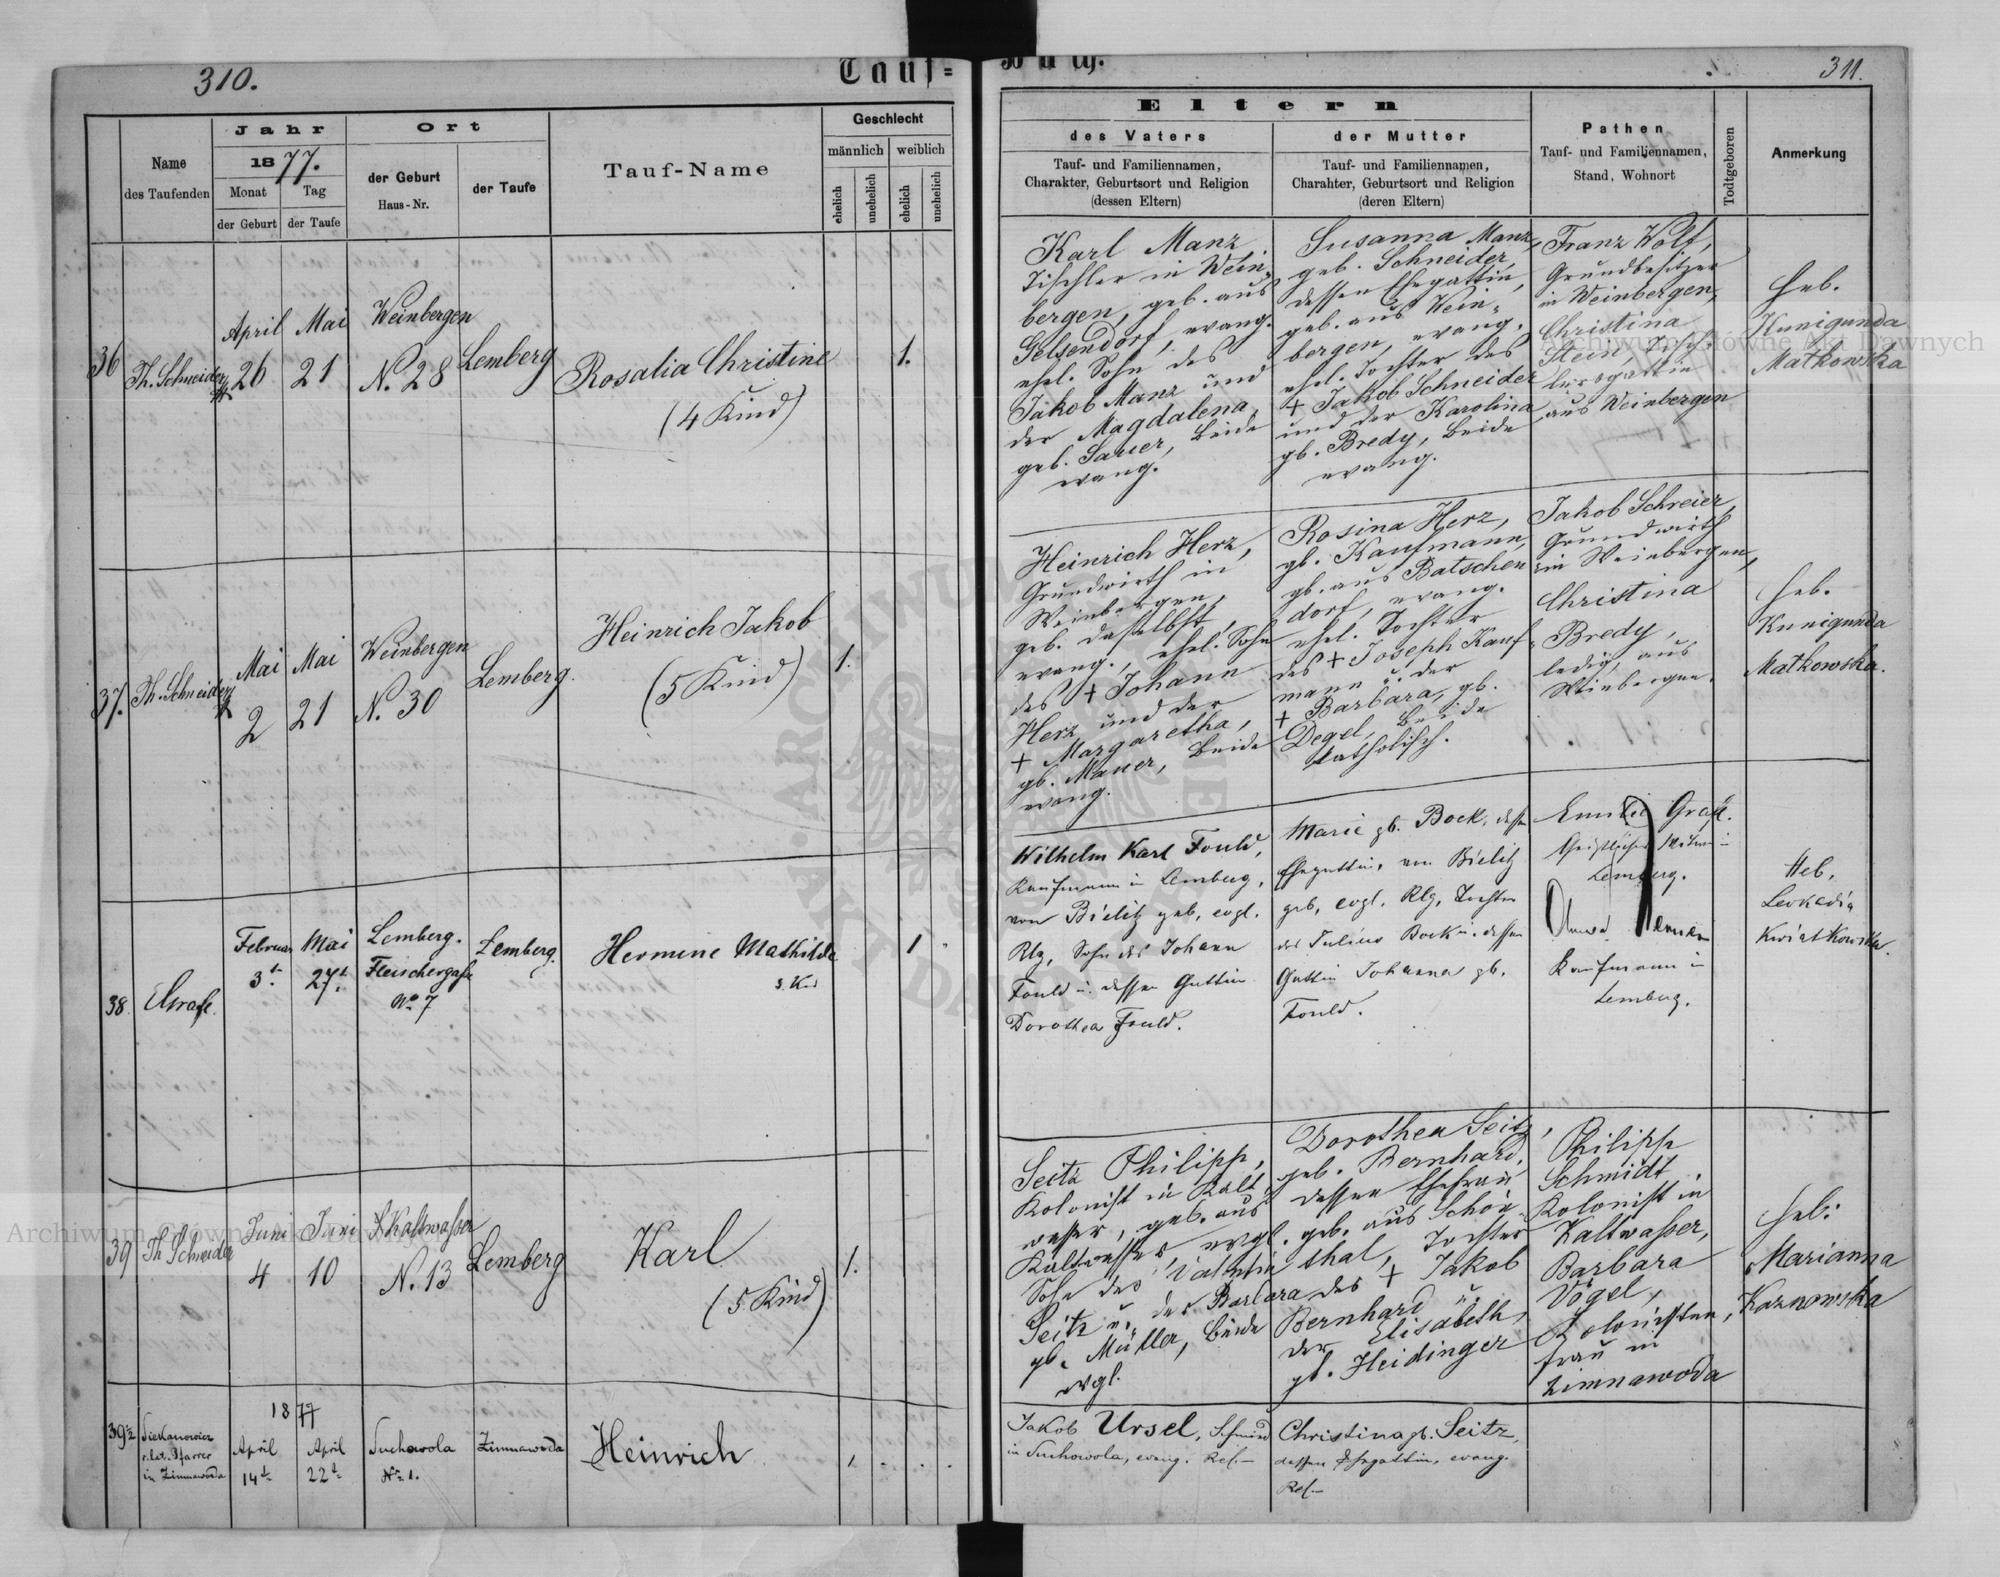 310.
Tauf-
Buch.
311.
Name
des Taufenden
Jahr
1877.
Monat
Tag
der Geburt
der Taufe
Ort
der Geburt
Haus-Nr.
der Taufe
Tauf-Name
Geschlecht
männlich
weiblich
ehelich
unehelich
ehelich
unehelich
Eltern
des Vaters
Tauf- und Familiennamen,
Charakter, Geburtsort und Religion
(dessen Eltern)
der Mutter
Tauf- und Familiennamen,
Charahter, Geburtsort und Religion
(deren Eltern)
Pathen
Tauf- und Familiennamen,
Stand, Wohnort
Todtgeboren
Anmerkung
36
Th. Schneider
April
26
Mai
21
Weinbergen
N. 28
Lemberg
Rosalia Christine
(4 Kind)
1.
Karl Manz
Tischler in Wein-
bergen, geb. aus
Gelsendorf, evang.
ehel. Sohn des
Jakob Manz und
der Magdalena,
geb. Sauer, beide
evang.
Susanna Manz,
geb. Schneider,
dessen Ehegattin,
geb. aus Wein-
bergen, evang.
ehel. Tochter des
+ Jakob Schneider
und der Karolina
gb. Bredy, beide
evang.
Franz Wolf,
Grundbesitzer
in Weinbergen,
Christina
Stein,
aus Weinbergen
Heb.
Kunigunda
Matkowska
37.
Th. Schneider
Mai
2
Mai
21
Weinbergen
N. 30
Lemberg.
Heinrich Jakob
(5 Kind)
1.
Heinrich Herz,
Grundwirth in
Weinbergen,
geb. daselbst,
evang., ehel. Sohn
des + Johann
Herz und der
+ Margaretha,
gb. Mauer, beide
evang.
Rosina Herz,
gb. Kaufmann,
gb. aus Batschen
dorf, evang.
ehel. Tochter
des + Joseph Kauf-
mann u. der
+ Barbara, gb.
Degel, beide
katholisch.
Jakob Schreier,
Grundwirth
in Weinbergen,
Christina
Bredy,
ledig, aus
Weinbergen.
Heb.
Kunigunda
Matkowska.
38.
EGrafl.
Februar
3t.
Mai
27t.
Lemberg.
Fleischergasse
No 7
Lemberg.
Hermine Mathilde
3. Kind
1
Wilhelm Karl Fould,
Kaufmann in Lemberg,
von Bielitz geb, evgl.
Rlg, Sohn des Johann
Fould u. dessen Gattin
Dorothea Fould.
Marie gb. Bock, dessen
Ehegattin, von Bielitz
geb, evgl. Rlg, Tochter
des Julius Bock u. dessen
Gattin Johanna gb.
Fould.
Emilie Grafl.
Lemberg.
Anna
Kaufmann in
Lemberg.
Heb.
Leokadia
Kwiatkowska.
39
Th Schneider
Juni
4
Juni
10
Kaltwasser
N. 13
Lemberg
Karl
(5 Kind)
1.
Seitz Philipp,
Kolonist in Kalt
wasser, geb. aus
Kaltwasser, evgl.
Sohn des Valentin
Seitz u. der Barbara
gb. Müller, beide
evgl.
Dorothea Seitz,
geb. Bernhard,
dessen Ehefrau
geb. aus Schön
thal, Tochter
des + Jakob
Bernhard u.
der Elisabeth,
gb. Heidinger
Philipp
Schmidt
Kolonist in
Kaltwasser,
Barbara
Vogel,
Kolonisten,
frau in
Zimnawoda
Heb:
Marianna
Karnowska
39 1/2
Siekanowicz
r. lat. Pfarrer
in Zimnawoda
1877
April
14t
April
22t
Suchowola
Nr. 1.
Zimnawoda
Heinrich
Jakob Ursel, Schmied
in Suchowola, evang. Ref.—
Christina gb. Seitz,
dessen Ehegattin, evang.
Ref.—
Archiwum Główne Akt Dawnych